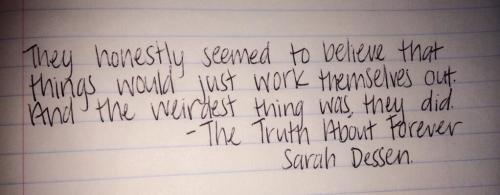 They honestly seemed to believe that
things would just work themselves out.
And the weirdest thing was, they did.
- The Truth About Forever
Sarah Dessen.